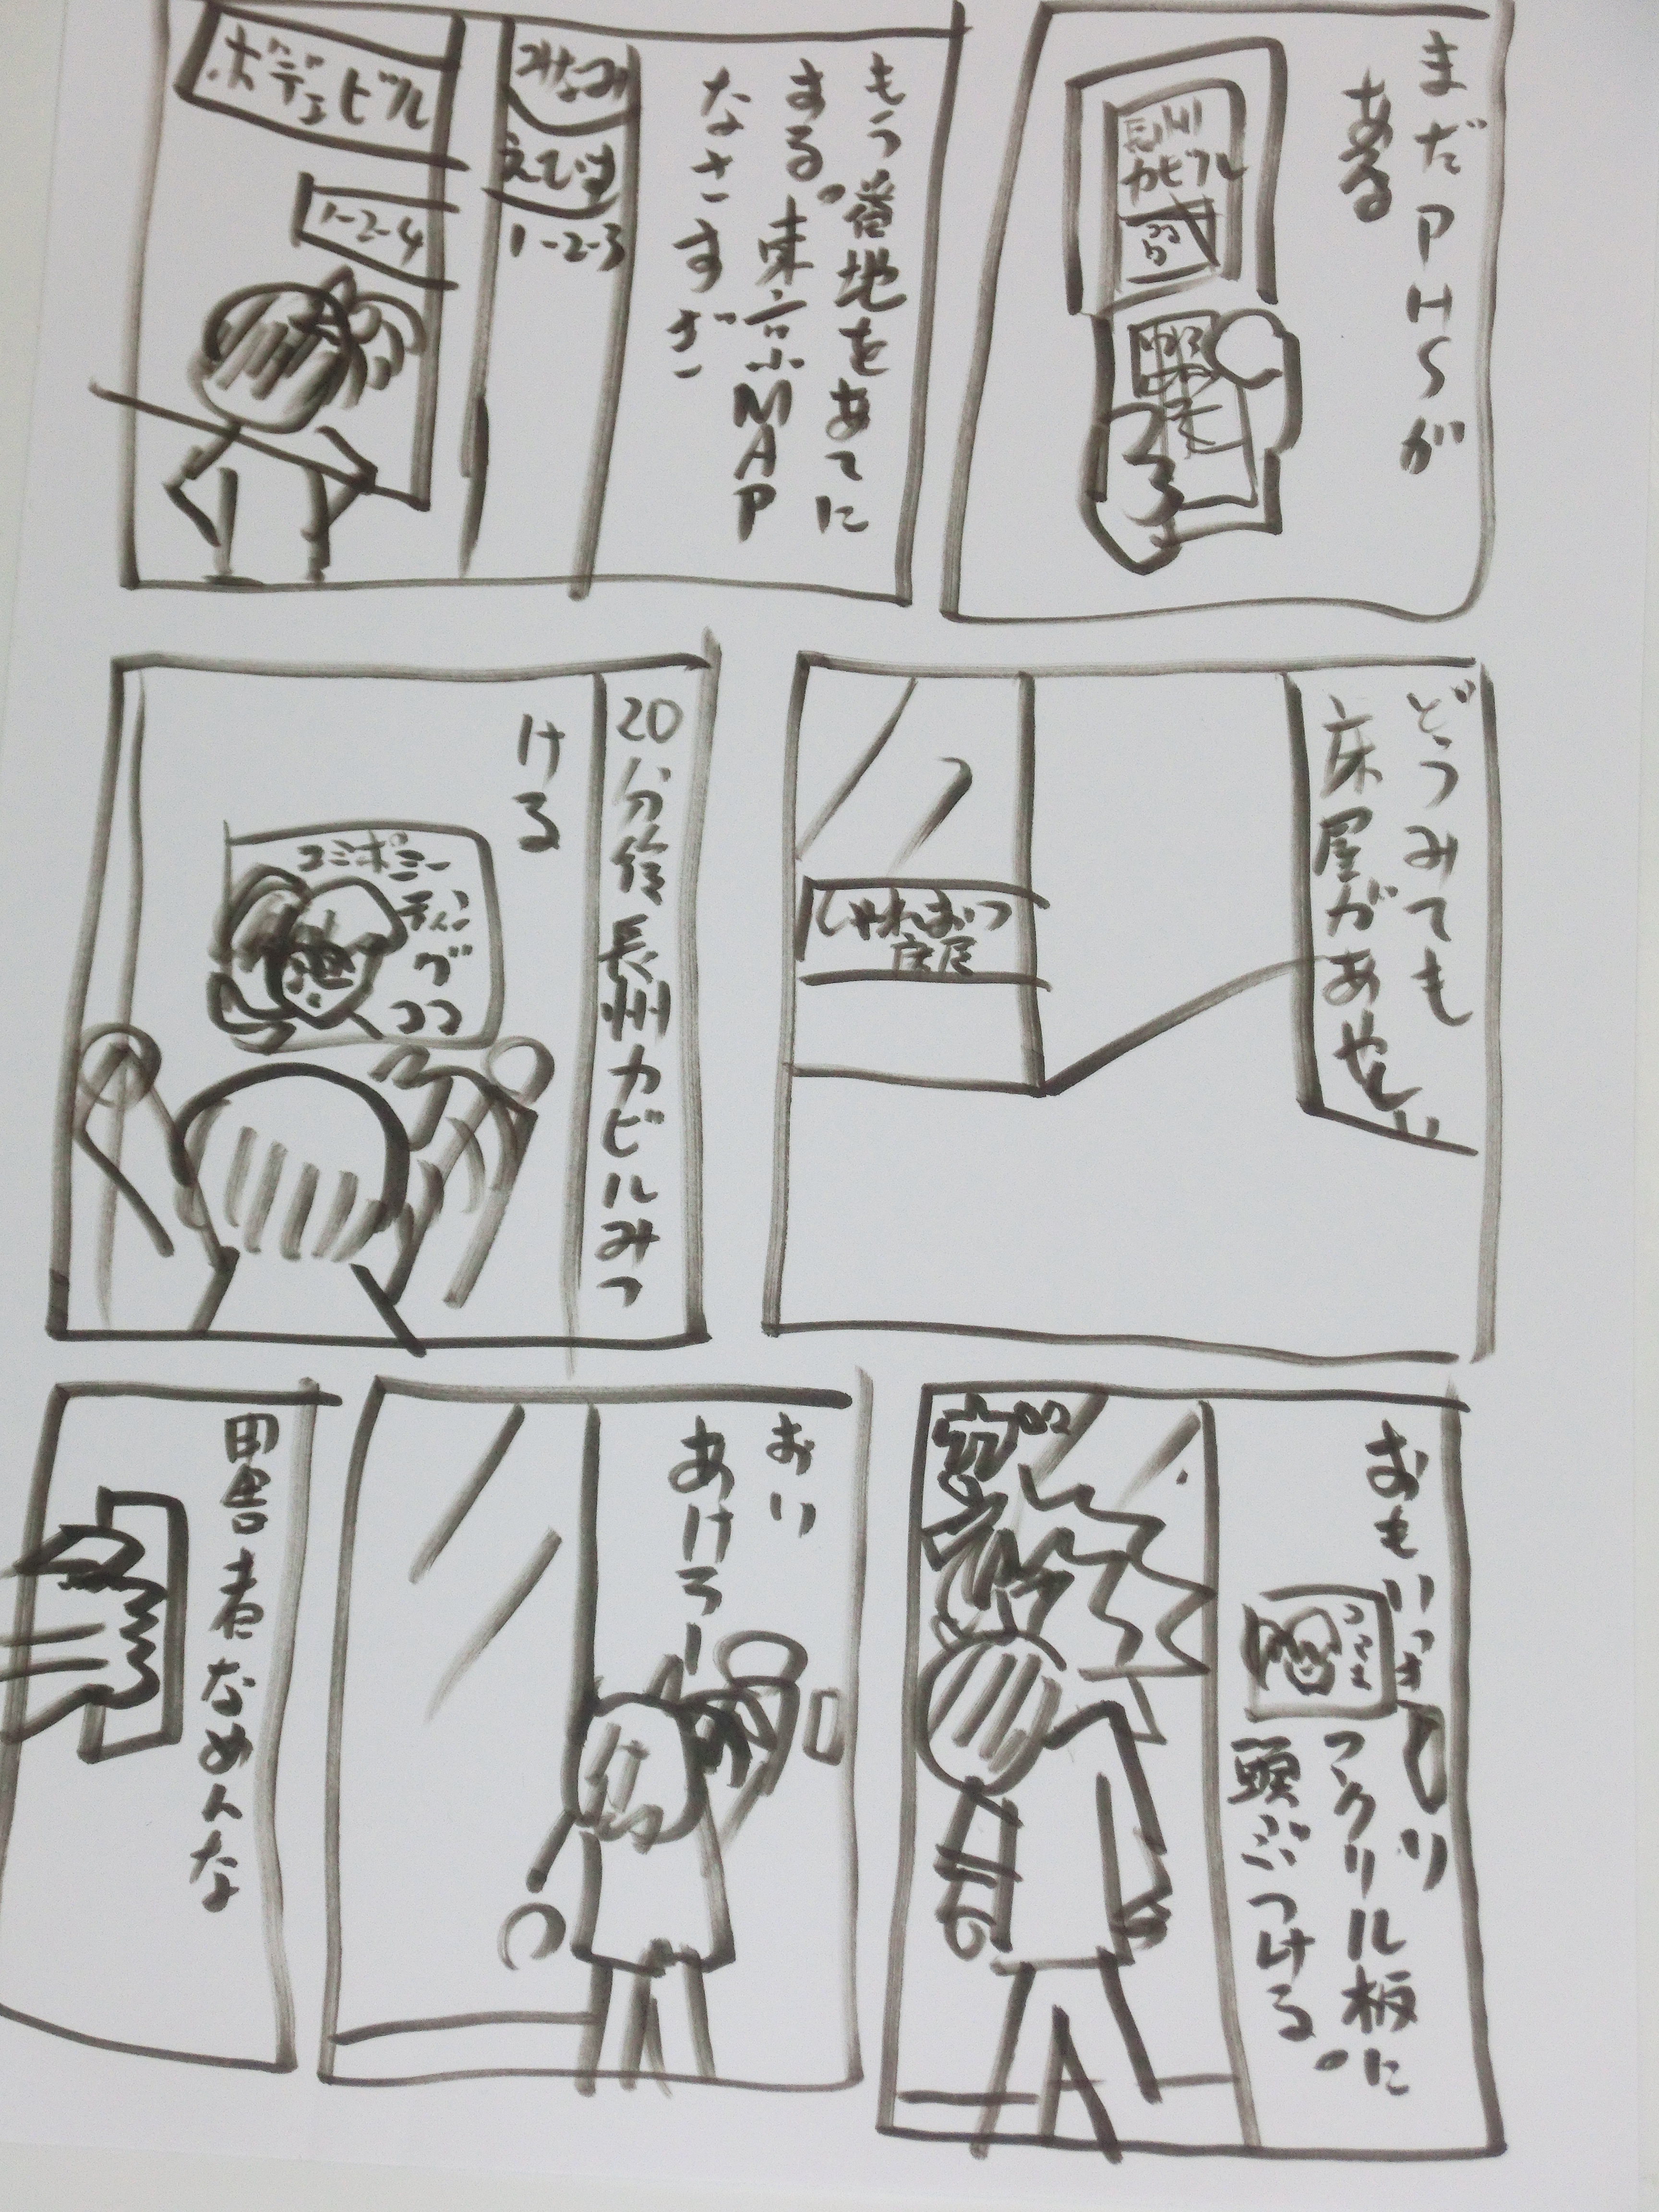 まだPHSが
ある
長州
カビル
もう番地をあてに
する。東京MAP
なさすぎ
みなみ
えびす
1-2-3
ボデュビル
1-2-4
どうみても
床屋があやしい
しゃれおつ
床屋
20分後長州カビルみつ
ける
コミポミー
ティング
ココ
おもいっきり
アクリル板に
頭ぶつける。
おい
あけろー
田舎者なめんな